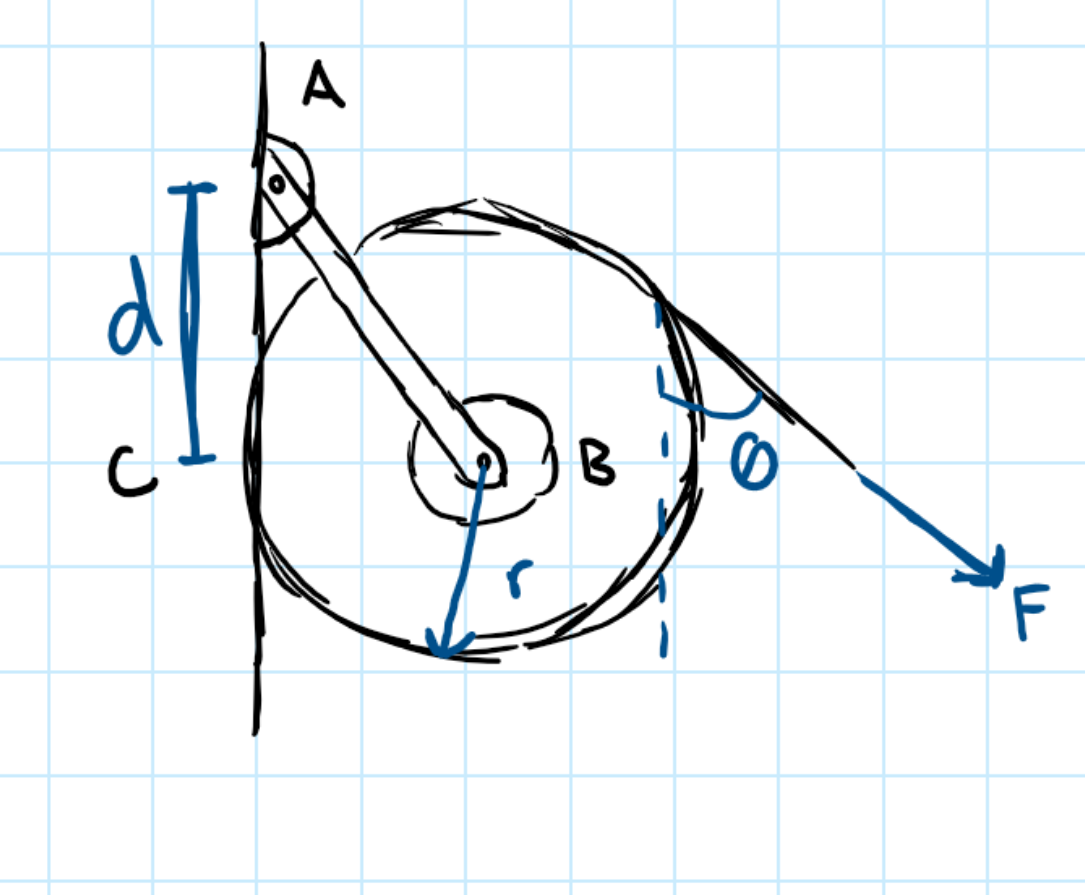 A
d
C
B
θ
r
F